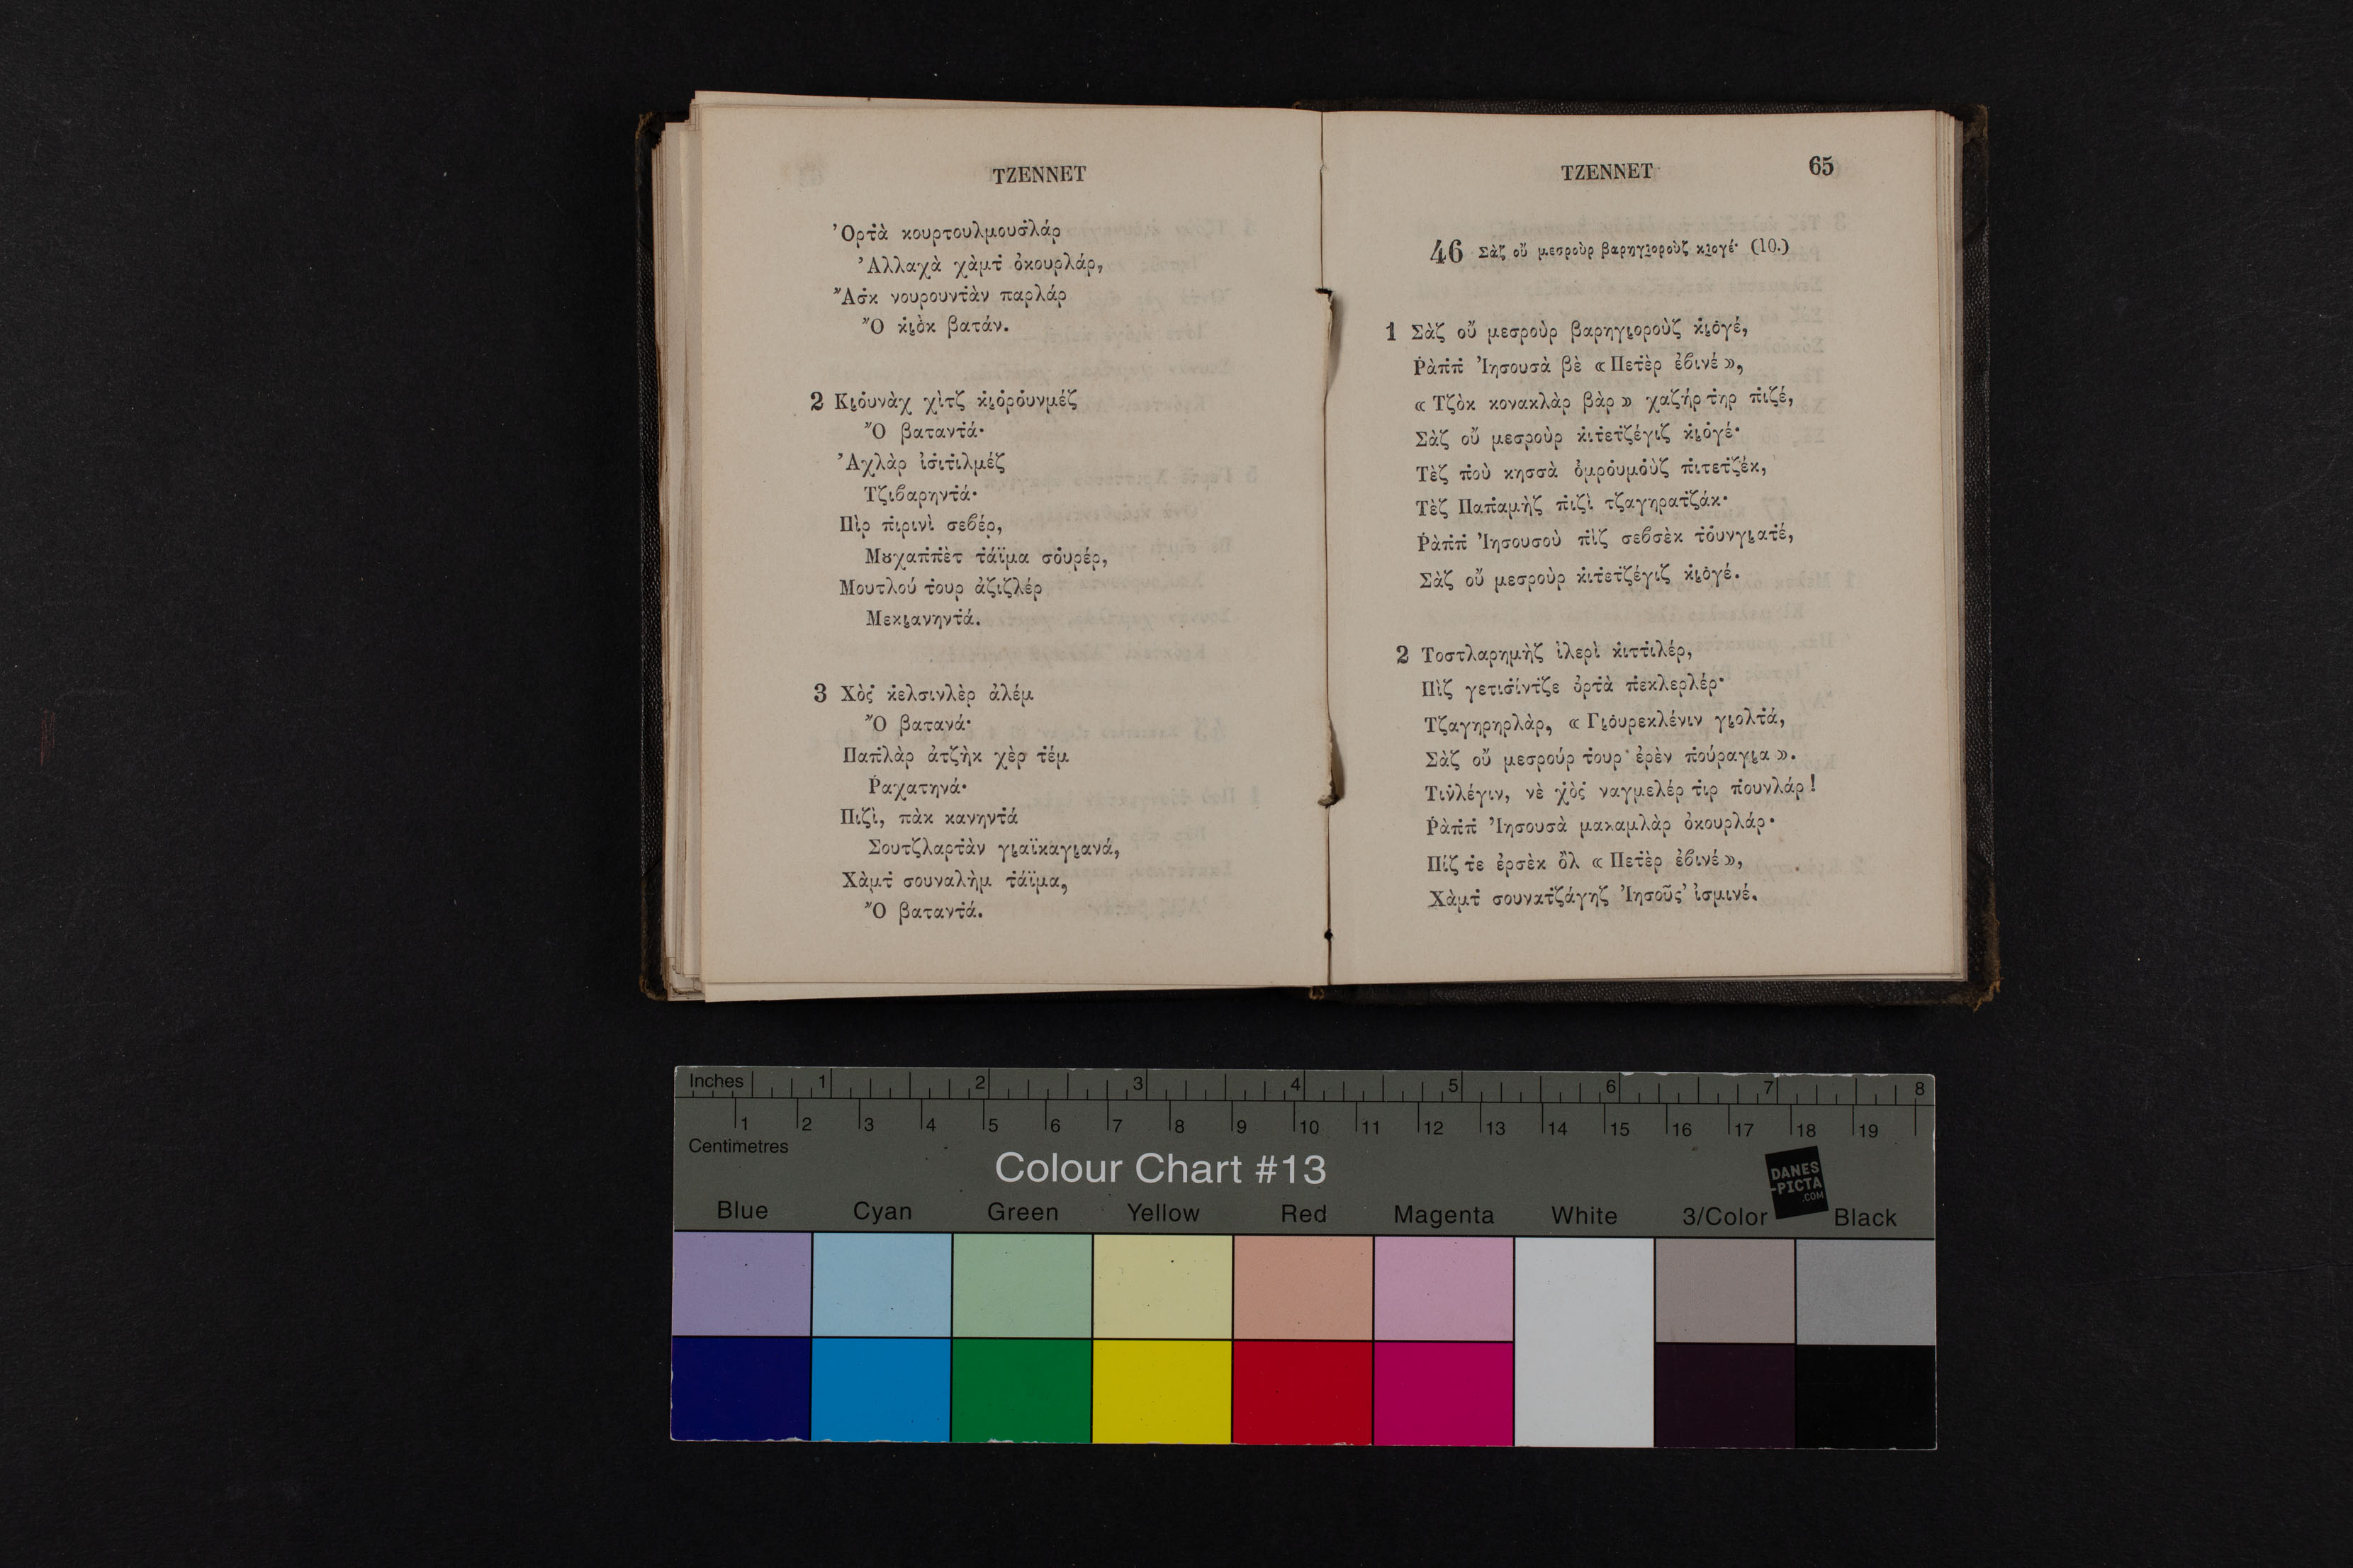 ΤΖΕΝΝΕΤ
Ὀρτὰ κουρτουλμουσλάρ
Ἀλλαχὰ χὰμτ ὀκουρλάρ,
Ἄσκ νουρουντὰν παρλάρ
Ὂ κιὸκ βατάν.
2 Κιουνὰχ χὶτζ κιορουνμέζ
Ὂ βαταντά·
Ἀχλὰρ ἰσιτιλμέζ
Τζιβαρηντά·
Πὶρ πιρινὶ σεβέρ,
Μȣχαππὲτ τάϊμα σουρέρ,
Μουτλού τουρ ἀζιζλέρ
Μεκιανηντά.
3 Χὸς κελσινλὲρ ἀλέμ
Ὂ βατανά·
Παπλὰρ ἀτζὴκ χὲρ τέμ
Ῥαχατηνά·
Πιζὶ, πὰκ κανηντά
Σουτζλαρτὰν γιαϊκαγιανά,
Χὰμτ σουναλὴμ τάϊμα,
Ὂ βαταντά.
ΤΖΕΝΝΕΤ 65
46 Σὰζ οὔ μεσροὺρ βαρηγιοροὺζ κιογέ· (10.)
1 Σὰζ οὔ μεσροὺρ βαρηγιοροὺζ κιογέ,
Ῥὰππ Ἰησουσὰ βὲ « Πετὲρ ἐβινέ »,
« Τζὸκ κονακλὰρ βὰρ » χαζήρ τηρ πιζέ,
Σὰζ οὔ μεσροὺρ κιτετζέγιζ κιογέ·
Τὲζ ποὺ κησσὰ ὀμρουμοὺζ πιτετζέκ,
Τὲζ Παπαμὴζ πιζὶ τζαγηρατζάκ·
Ῥὰππ Ἰησουσοὺ πὶζ σεβσὲκ τουνγιατέ,
Σὰζ οὔ μεσροὺρ κιτετζέγιζ κιογέ.
2 Τοστλαρημὴζ ἰλερὶ κιττιλέρ,
Πὶζ γετισίντζε ὀρτὰ πεκλερλέρ·
Τζαγηρηρλὰρ, « Γιουρεκλένιν γιολτά,
Σὰζ οὔ μεσρούρ τουρ ἐρὲν πούραγια ».
Τινλέγιν, νὲ χὸς ναγμελέρ τιρ πουνλάρ!
Ῥὰππ Ἰησουσὰ μακαμλὰρ ὀκουρλάρ·
Πίζ τε ἐρσὲκ ὂλ « Πετὲρ ἐβινέ »,
Χὰμτ σουνατζάγηζ Ἰησοῦς' ἰσμινέ.
Inches 1 2 3 4 5 6 7 8
1 2 3 4 5 6 7 8 9 10 11 12 13 14 15 16 17 18 19
Centimetres
Colour Chart #13
DANES
-PICTA
.COM
Blue Cyan Green Yellow Red Magenta White 3/Color Black